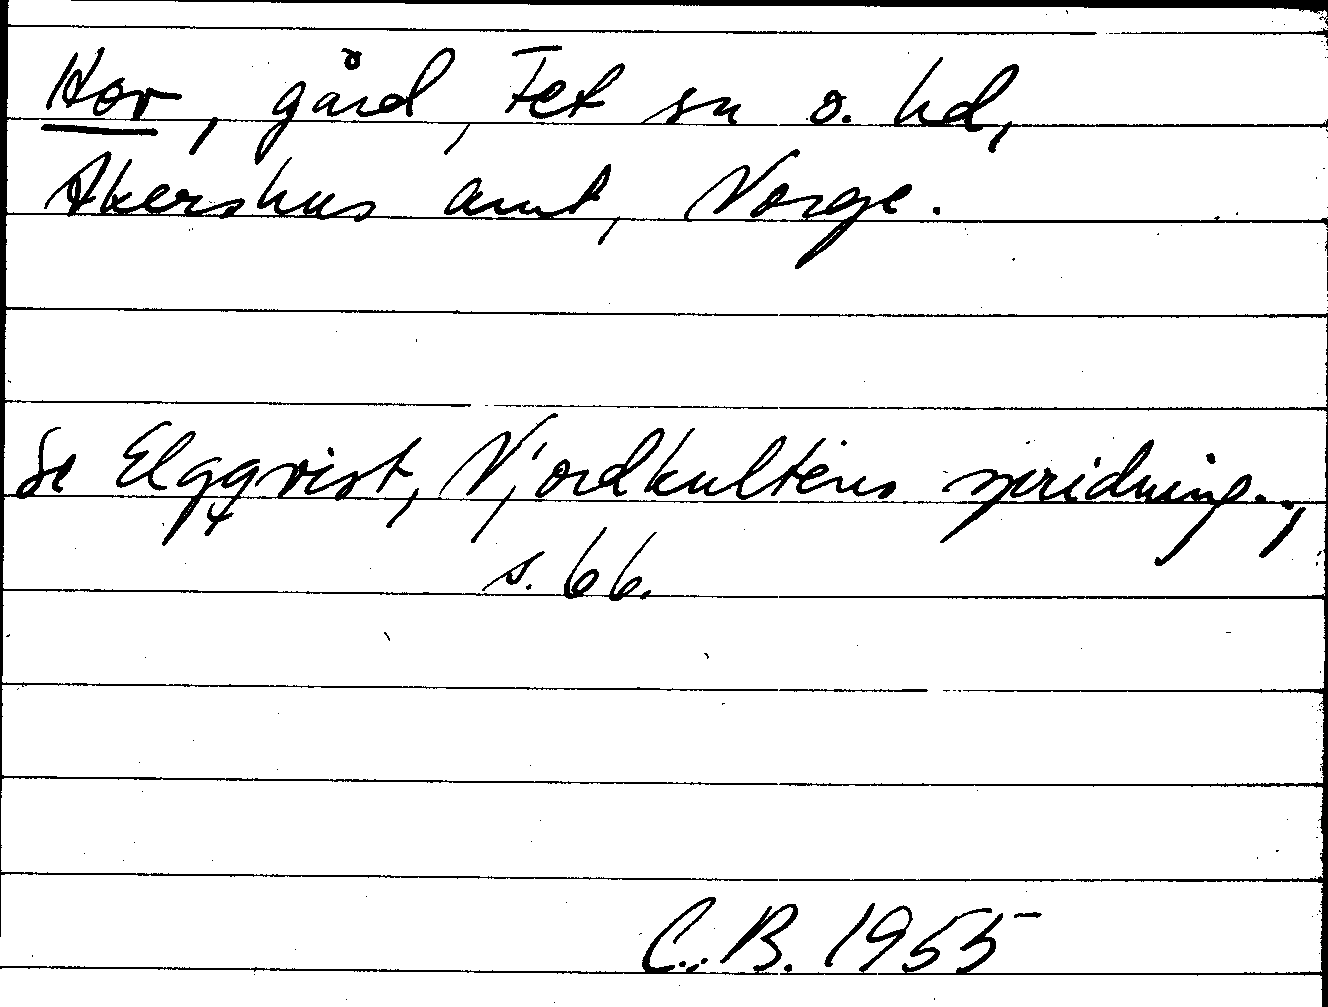 Hov, gård, Fet sn o. hd,
Akershus amt, Norge.
Se Elgqvist, Njordkultens spridning.,
s. 66.
C.B. 1955